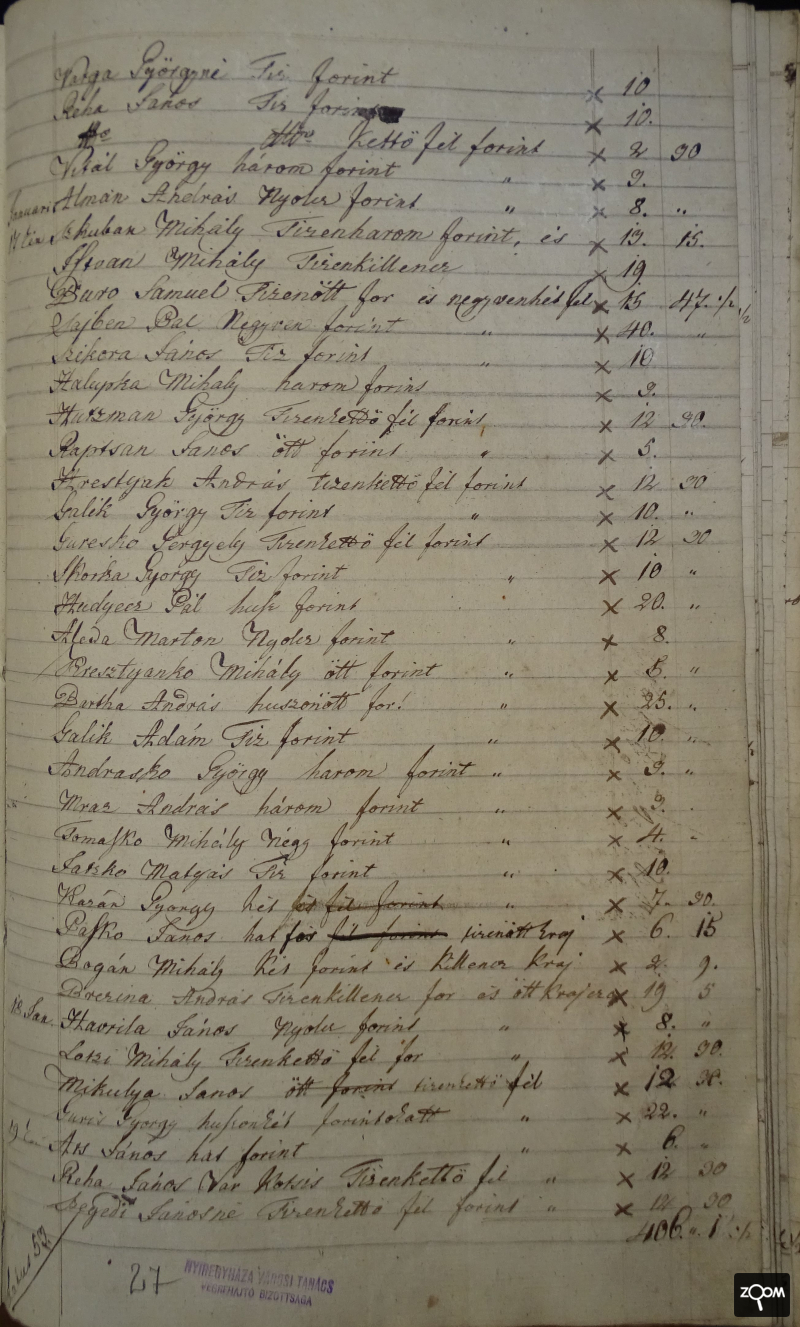 Varga Györgyné Tiz forint x 10
Réha János Tiz forint x 10.
Kettő fél forint x 2 30
Vitál György három forint " x 3.
Januari Alman András Nyolcz forint " x 8. "
17 Skuban Mihály Tizenharom forint, és x 13. 15.
Istvan Mihály Tizenkillencz x 19
Buro Samuel Tizenött for és negyvenhét fel x 15 47. 1/2
Lajben Pál Negyven forint " x 40. "
Szikora János Tiz forint " x 10
Halupka Mihaly harom forint x 3.
Hutzman György Tizenkettő fél forint x 12 30.
Raptsan János ött forint " x 5.
Krestyak András tizenkettő fél forint x 12 30
Galik György Tiz forint " x 10. "
Guresko Gergyely Tizenkettő fél forint x 12 30
Skorka György Tiz forint " x 10 "
Hudyecz Pál husz forint x 20. "
Aleva Marton Nyolcz forint " x 8.
Kresztyanko Mihály ött forint " x 5. "
Bartha András huszonött for! " x 25. "
Galik Adám Tiz forint " x 10. "
Andrasko György harom forint " x 3. "
Mraz András három forint " x 3.
Tomasko Mihály Négy forint " x 4. -
Satzko Matyás Tiz forint " x 10.
Kazár György hét és fél forint " x 7. 30.
Pasko János hat for fél forint tizenött kraj x 6. 15
Bogán Mihály Két forint és Killencz kraj x 2. 9.
Brezina András Tizenkillencz for és ött krajczar x 19 5
18 Jan. Havrila János Nyolcz forint " x 8. "
Lotzi Mihály Tizenkettő fél for " x 12. 30.
Mikulya Janos ött forint tizenkettő fél x 12 30.
Juris György huszonkét forintokatt " x 22. "
19 János hat forint " x 6. "
Réha János Var Kotsis Tizenkettő fél " x 12 30
Szegedi Jánosné Tizenkettő fél forint " x 12 30
406. " 1 1/2
27
NYIREGYHÁZA VÁROSI TANÁCS
VÉGREHAJTÓ BIZOTTSÁGA
ZOOM